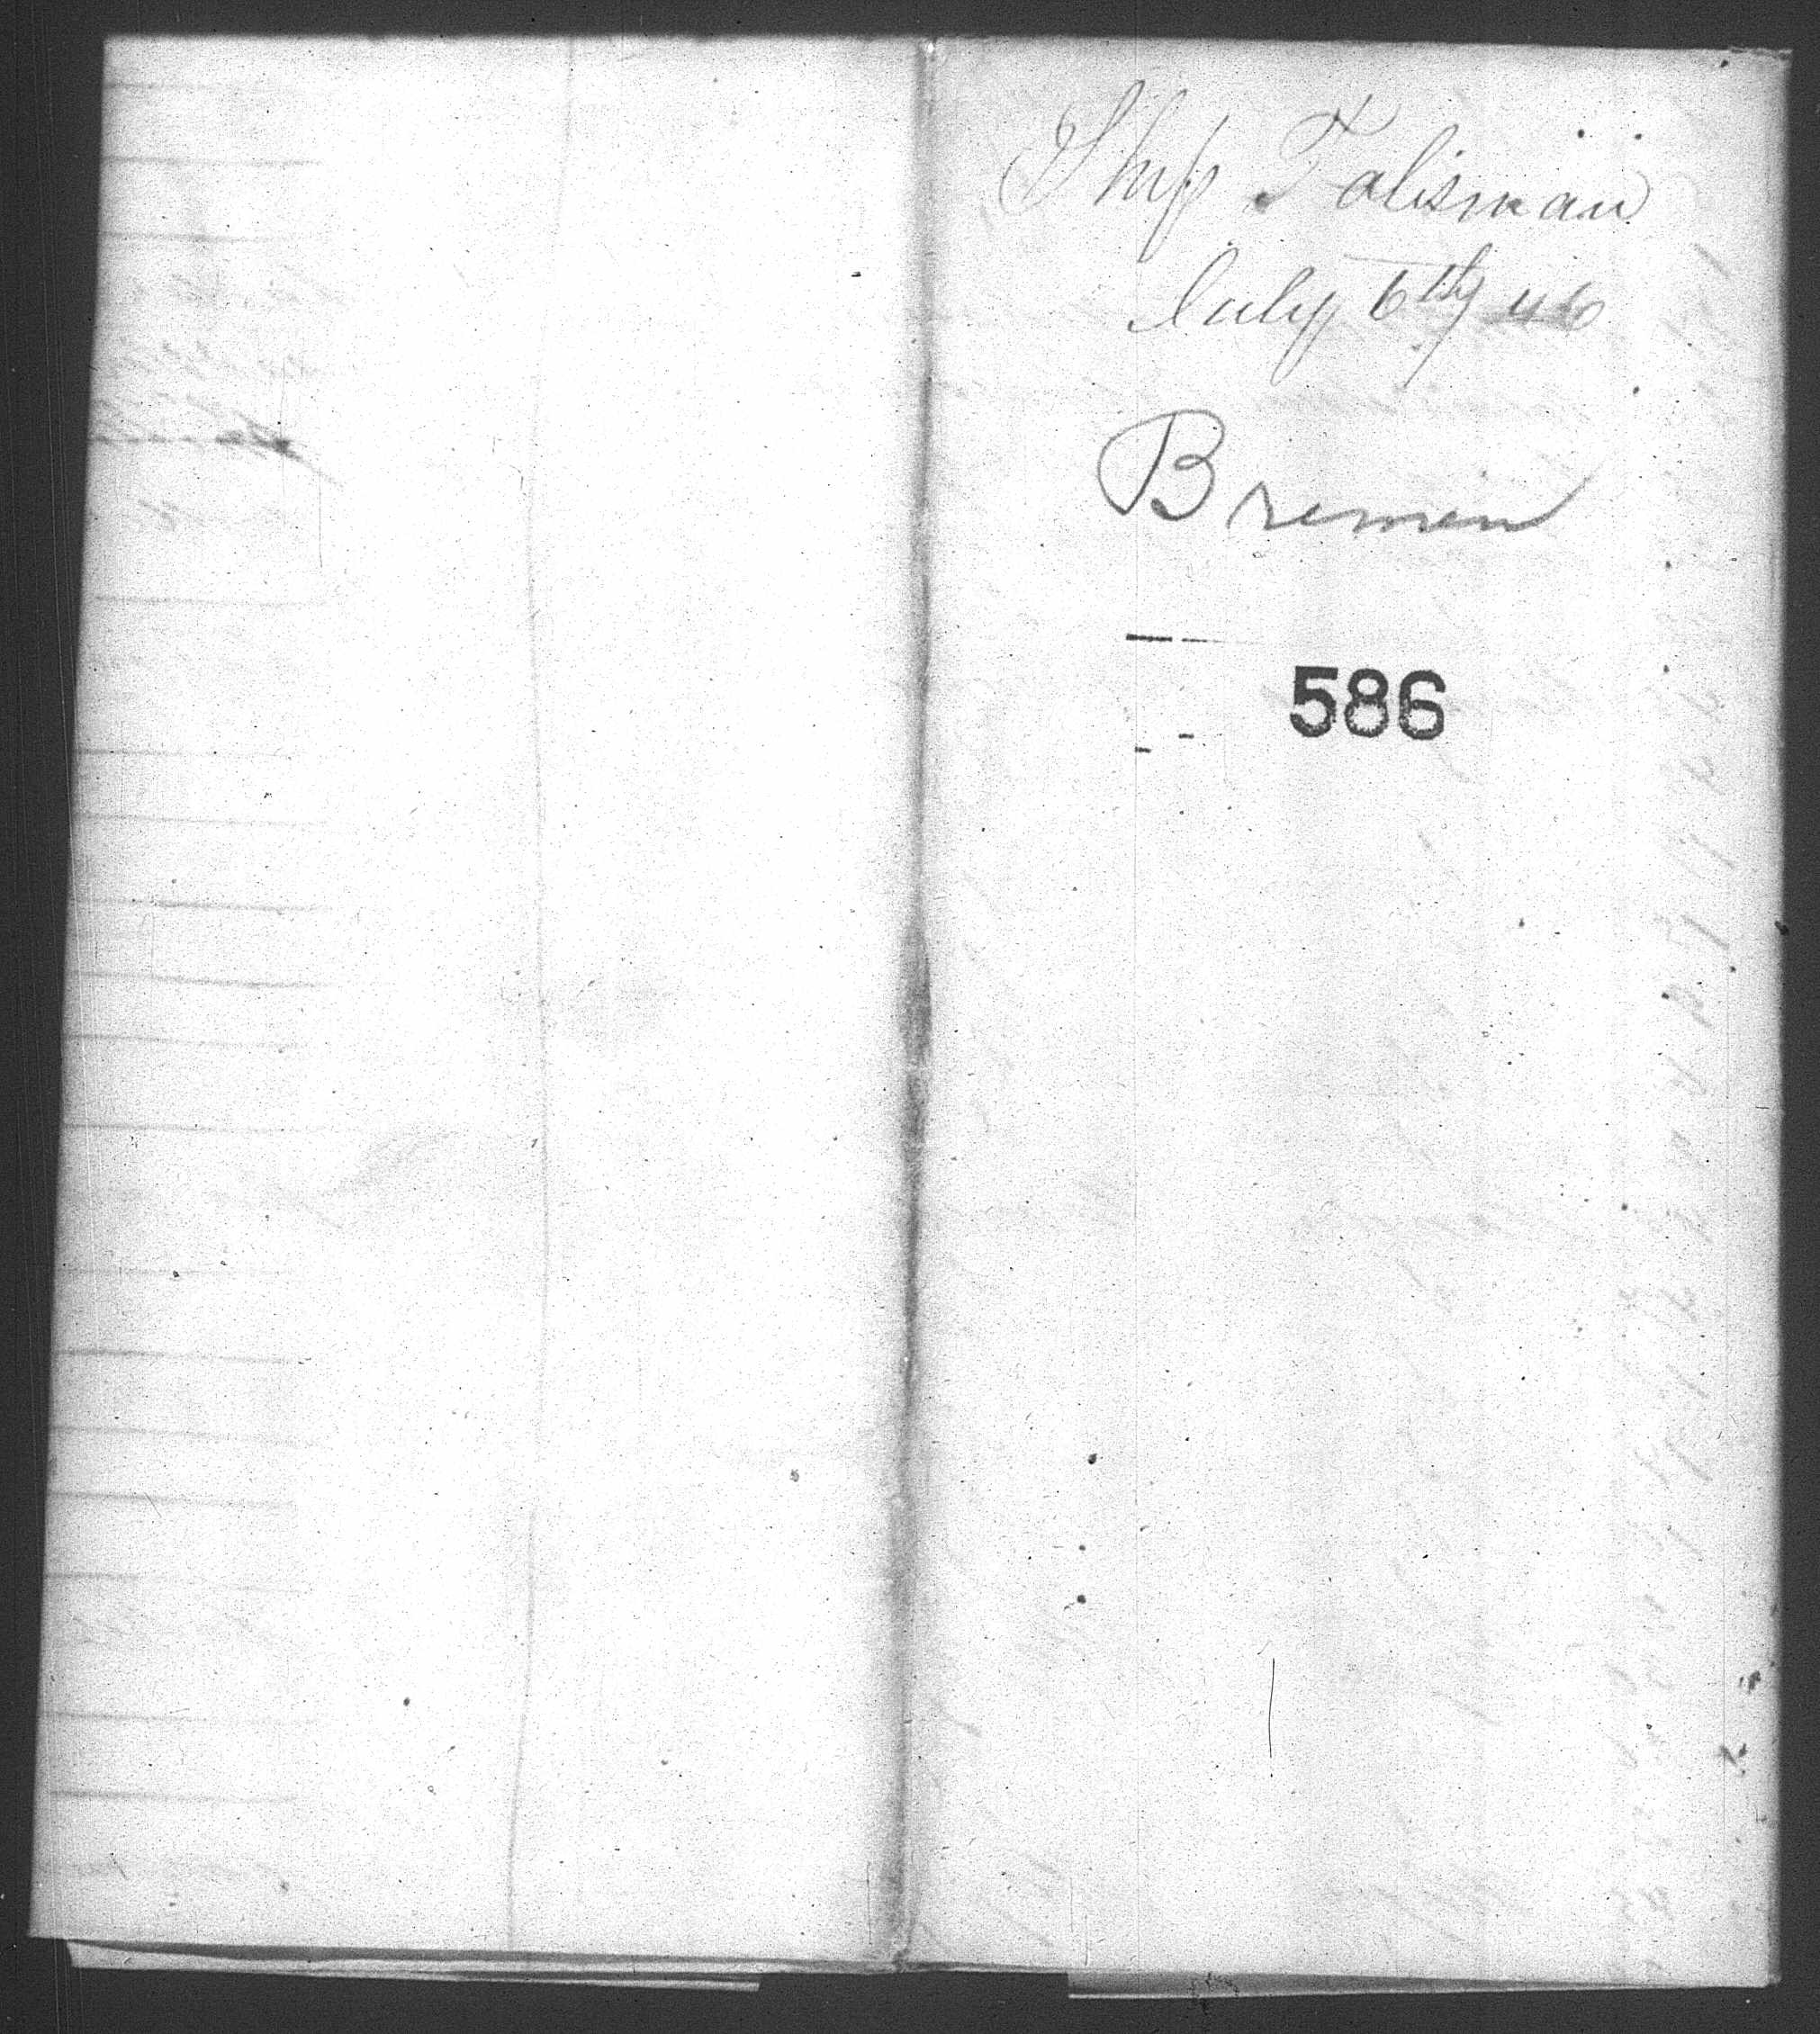 Ship Talisman
July 6th 46
Bremen
586